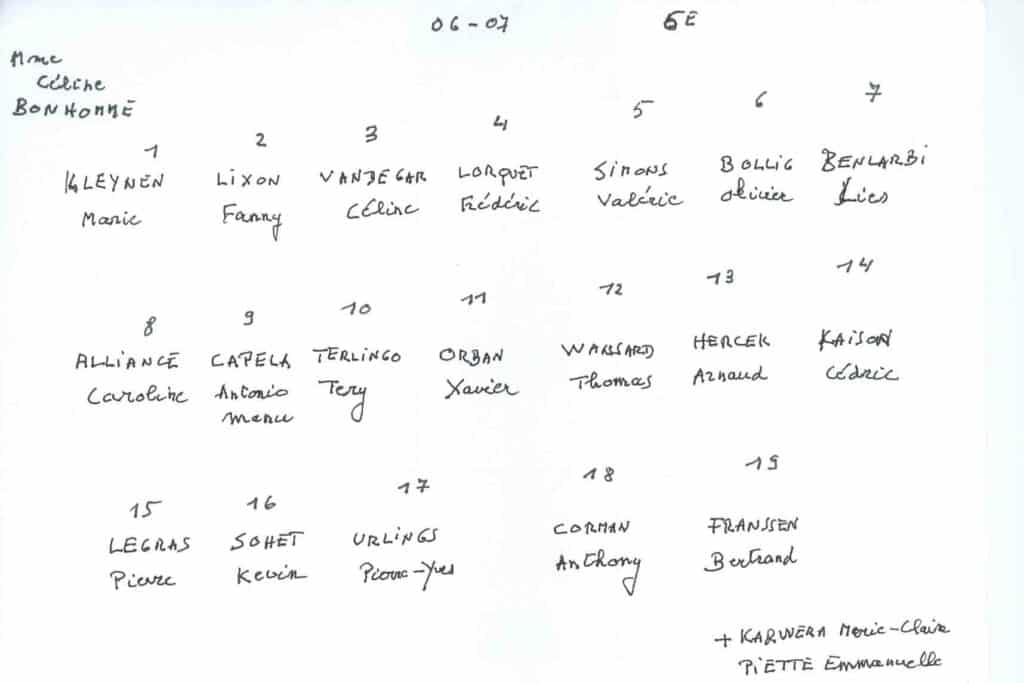 06-07 6E
Mme
Céline
BONHOMME
1 2 3 4 5 6 7
KLEYNEN LIXON VANDEGAR LORQUET SIMONS BOLLIG BENLARBI
Marie Fanny Céline Frédéric Valérie Olivier Lies
8 9 10 11 12 13 14
ALLIANCE CAPELA TERLINGO ORBAN WARSARD HERCEK KAISON
Caroline Antonio Tery Xavier Thomas Arnaud Cédric
Manu
15 16 17 18 19
LEGRAS SOHET URLINGS CORMAN FRANSSEN
Pierre Kevin Pierre-Yves Anthony Bertrand
+ KARWERA Marie-Claire
PIETTE Emmanuelle